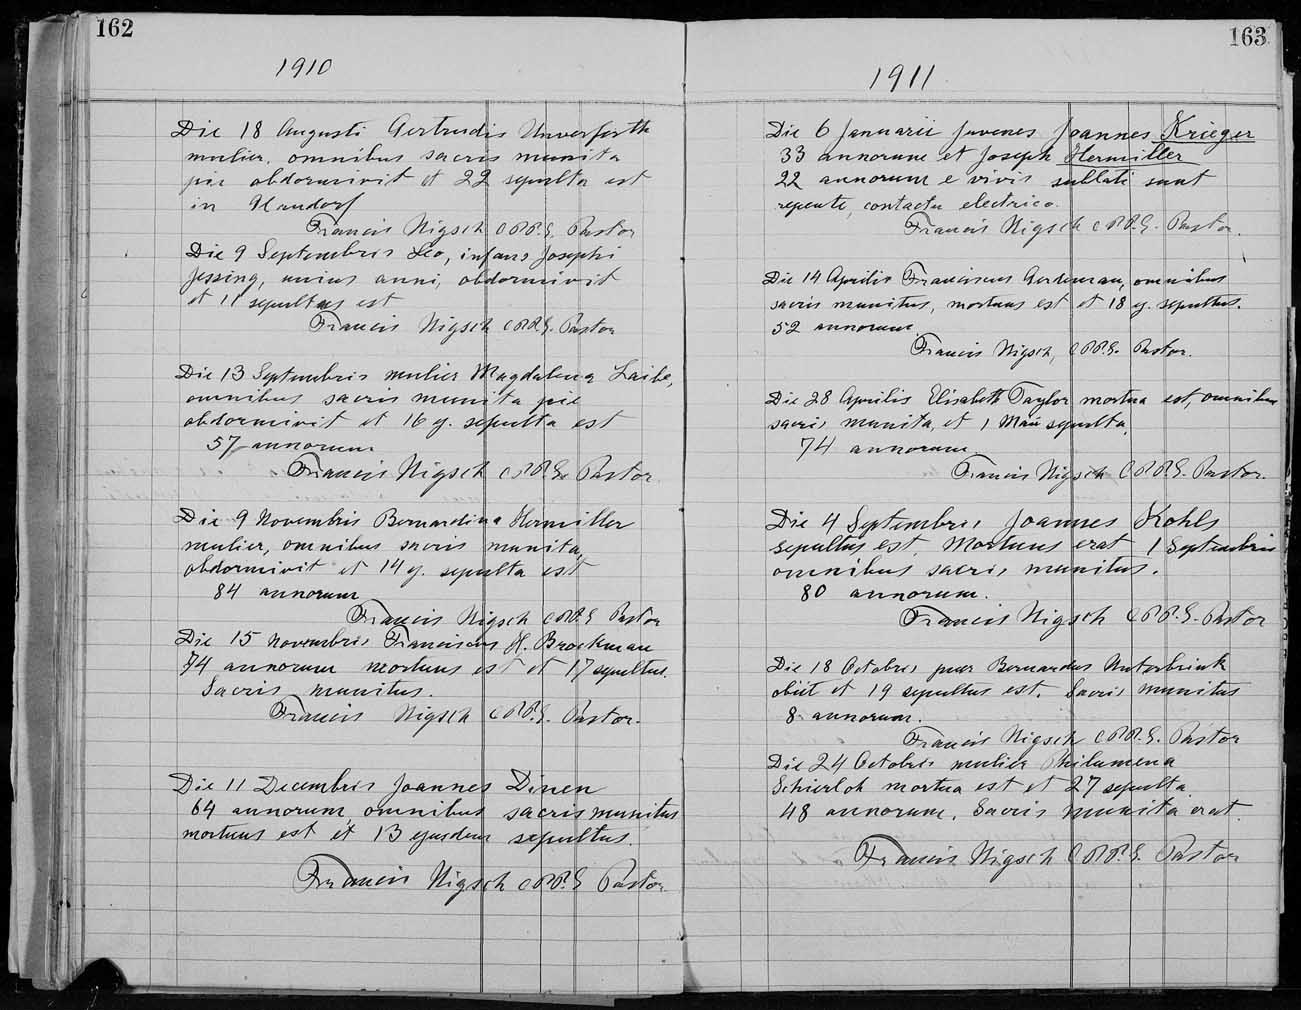 162
1910
Die 18 Augusti Gertrudis Unverferth
mulier, omnibus sacris munita
pie obdormivit et 22 sepulta est
in Glandorf
Francis Nigsch C.PP.S. Pastor
Die 9 Septembris Leo, infans Josephi
Jessing, unius anni, obdormivit
et 11 sepultus est
Francis Nigsch C.PP.S. Pastor
Die 13 Septembris mulier Magdalena Laibe,
omnibus sacris munita pie
obdormivit et 16 ej. sepulta est
57 annorum
Francis Nigsch C.PP.S. Pastor.
Die 9 Novembris Bernardina Hermiller
mulier, omnibus sacris munita,
obdormivit et 14 ej. sepulta est
84 annorum
Francis Nigsch C.PP.S Pastor
Die 15 Novembris Franciscus H. Brockman
74 annorum mortuus est et 17 sepultus.
Sacris munitus.
Francis Nigsch C.PP.S. Pastor.
Die 11 Decembris Joannes Dinen
64 annorum, omnibus sacris munitus
mortuus est et 13 ejusdem sepultus.
Francis Nigsch C.PP.S Pastor.
163
1911
Die 6 Januarii juvenes Joannes Krieger
33 annorum et Joseph Hermiller
22 annorum e vivis sublati sunt
repente, contactu electrico.
Francis Nigsch C.PP.S. Pastor.
Die 14 Aprilis Franciscus Gerdeman, omnibus
sacris munitus, mortuus est et 18 ej. sepultus.
52 annorum
Francis Nigsch, C.PP.S. Pastor.
Die 28 Aprilis Elisabeth Taylor mortua est, omnibus
sacris munita, et 1 Maii sepulta,
74 annorum
Francis Nigsch C.PP.S. Pastor.
Die 4 Septembris Joannes Kohls
sepultus est. Mortuus erat 1 Septembris
omnibus sacris munitus.
80 annorum.
Francis Nigsch C.PP.S. Pastor
Die 18 Octobris puer Bernardus Unterbrink
obiit et 19 sepultus est. Sacris munitus
8 annorum.
Francis Nigsch C.PP.S. Pastor
Die 24 Octobris mulier Philumena
Schierloh mortua est et 27 sepulta
48 annorum. Sacris munita erat.
Francis Nigsch C.PP.S. Pastor